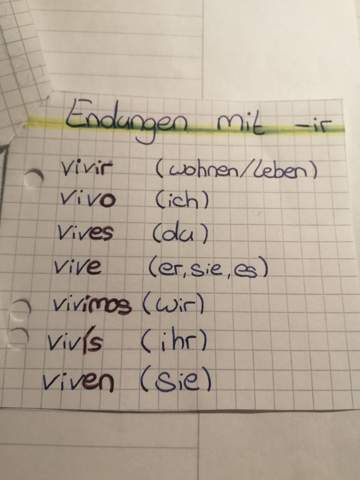 Endungen mit -ir
vivir (wohnen/leben)
vivo (ich)
vives (du)
vive (er, sie, es)
vivimos (wir)
vivís (ihr)
viven (sie)